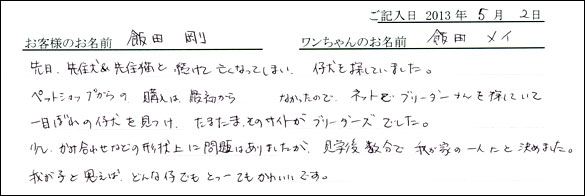 ご記入日 2013年 5月 2日
お客様のお名前 飯田 剛 ワンちゃんのお名前 飯田 メイ
先日、先住犬&先住猫と続けて亡くなってしまい、仔犬を探していました。
ペットショップからの購入は、最初から なかったので、ネットでブリーダーさんを探していて
一目ぼれの仔犬を見つけ、たまたまそのサイトがブリーダーズでした。
少し、かみ合わせなどの形状上に問題はありましたが、見学後数分で我が家の一人だと決めました。
我が子と思えば、どんな仔でもとってもかわいいです。